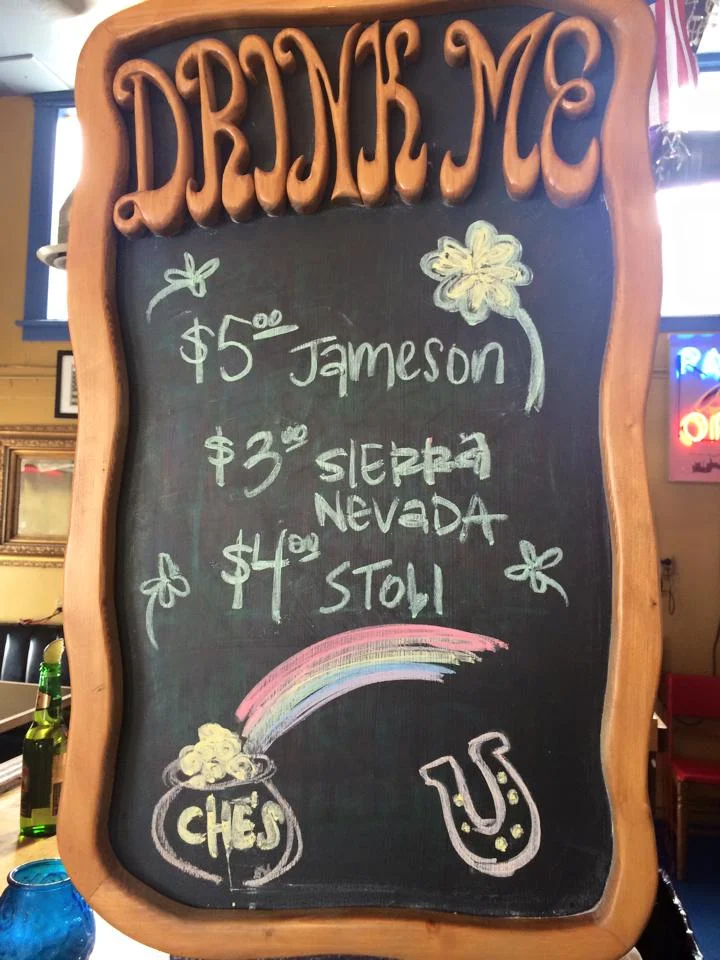 DRINK ME
$5.00 Jameson
$3.00 SIERRA
NEVADA
$4.00 STOLI
CHE'S